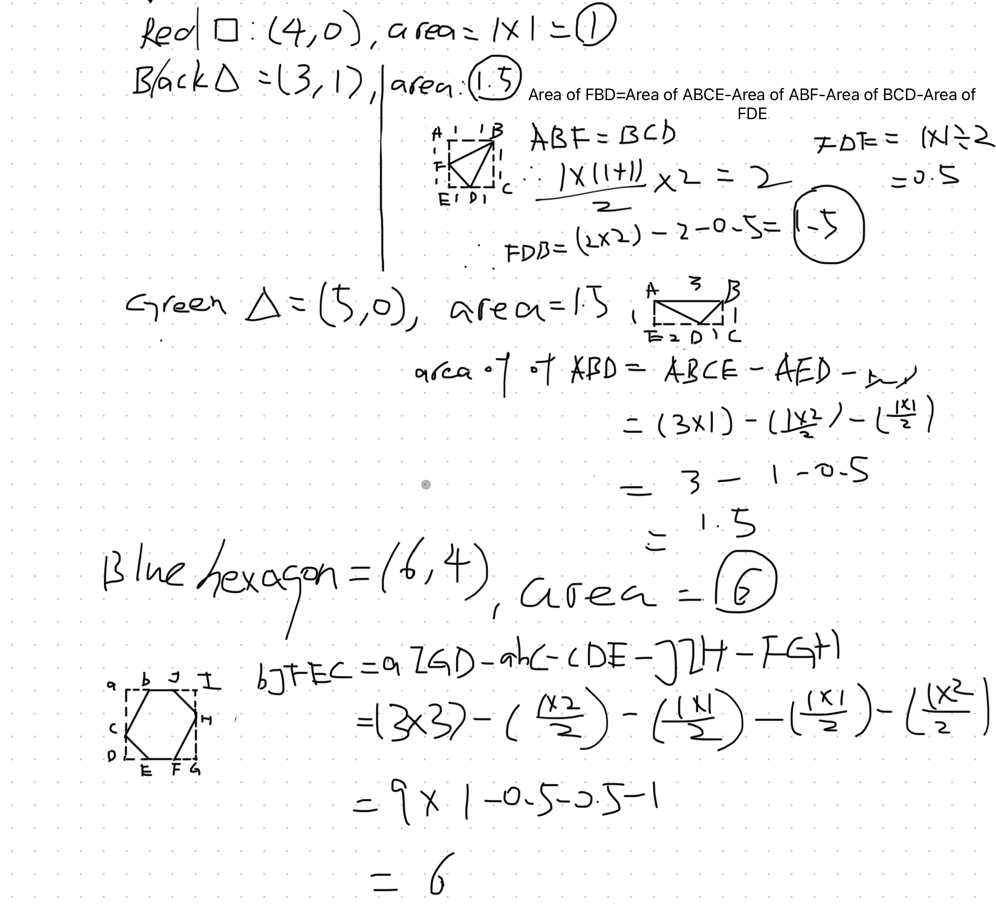 Red □: (4,0), area= 1×1 = 1
Black △ =(3,1), area: 1.5
Area of FBD=Area of ABCE-Area of ABF-Area of BCD-Area of
FDE
A 1 1 B
F
E 1 D 1 C
ABF = BCD
FDE = 1×1÷2
= 0.5
∴ 1×(1+1)/2 ×2 = 2
∴ FDB= (2×2) - 2-0.5= 1.5
Green △=(5,0), area=1.5
A 3 B
1 1
E 2 D 1 C
area of of ABD = ABCE - AED -
= (3×1) - (1×2/2) - (1×1/2)
= 3 - 1 -0.5
= 1.5
Blue hexagon = (6,4), area = 6
a b J I
C H
D E F G
bJFEC = a IGD-abC-CDE-JIH-FGH
=(3×3) - (1×2/2) - (1×1/2) - (1×1/2) - (1×2/2)
= 9 × 1 -0.5-0.5-1
= 6